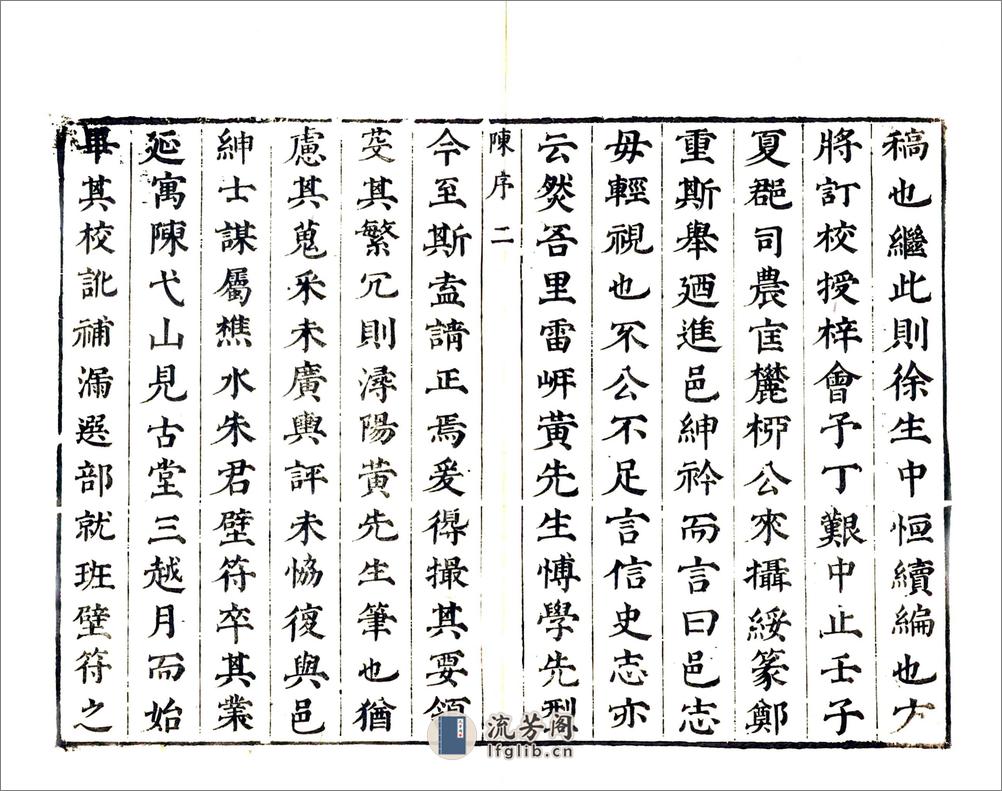 稿也繼此則徐生中恒續編也方
將訂校授梓會予丁艱中止壬子
夏郡司農匡麓栁公來攝綏篆鄭
重斯舉廼進邑紳衿而言曰邑志
毋輕視也不公不足言信史志亦
云然吾里雷岍黃先生博學先型
陳序 二
今至斯盍請正焉爰得撮其要領
芟其繁冗則潯陽黃先生筆也猶
慮其蒐采未廣輿評未恊復與邑
紳士謀屬樵水朱君壁符卒其業
延寓陳弋山見古堂三越月而始
畢其校訛補漏選部就班壁符之
流芳阁
lfglib.cn